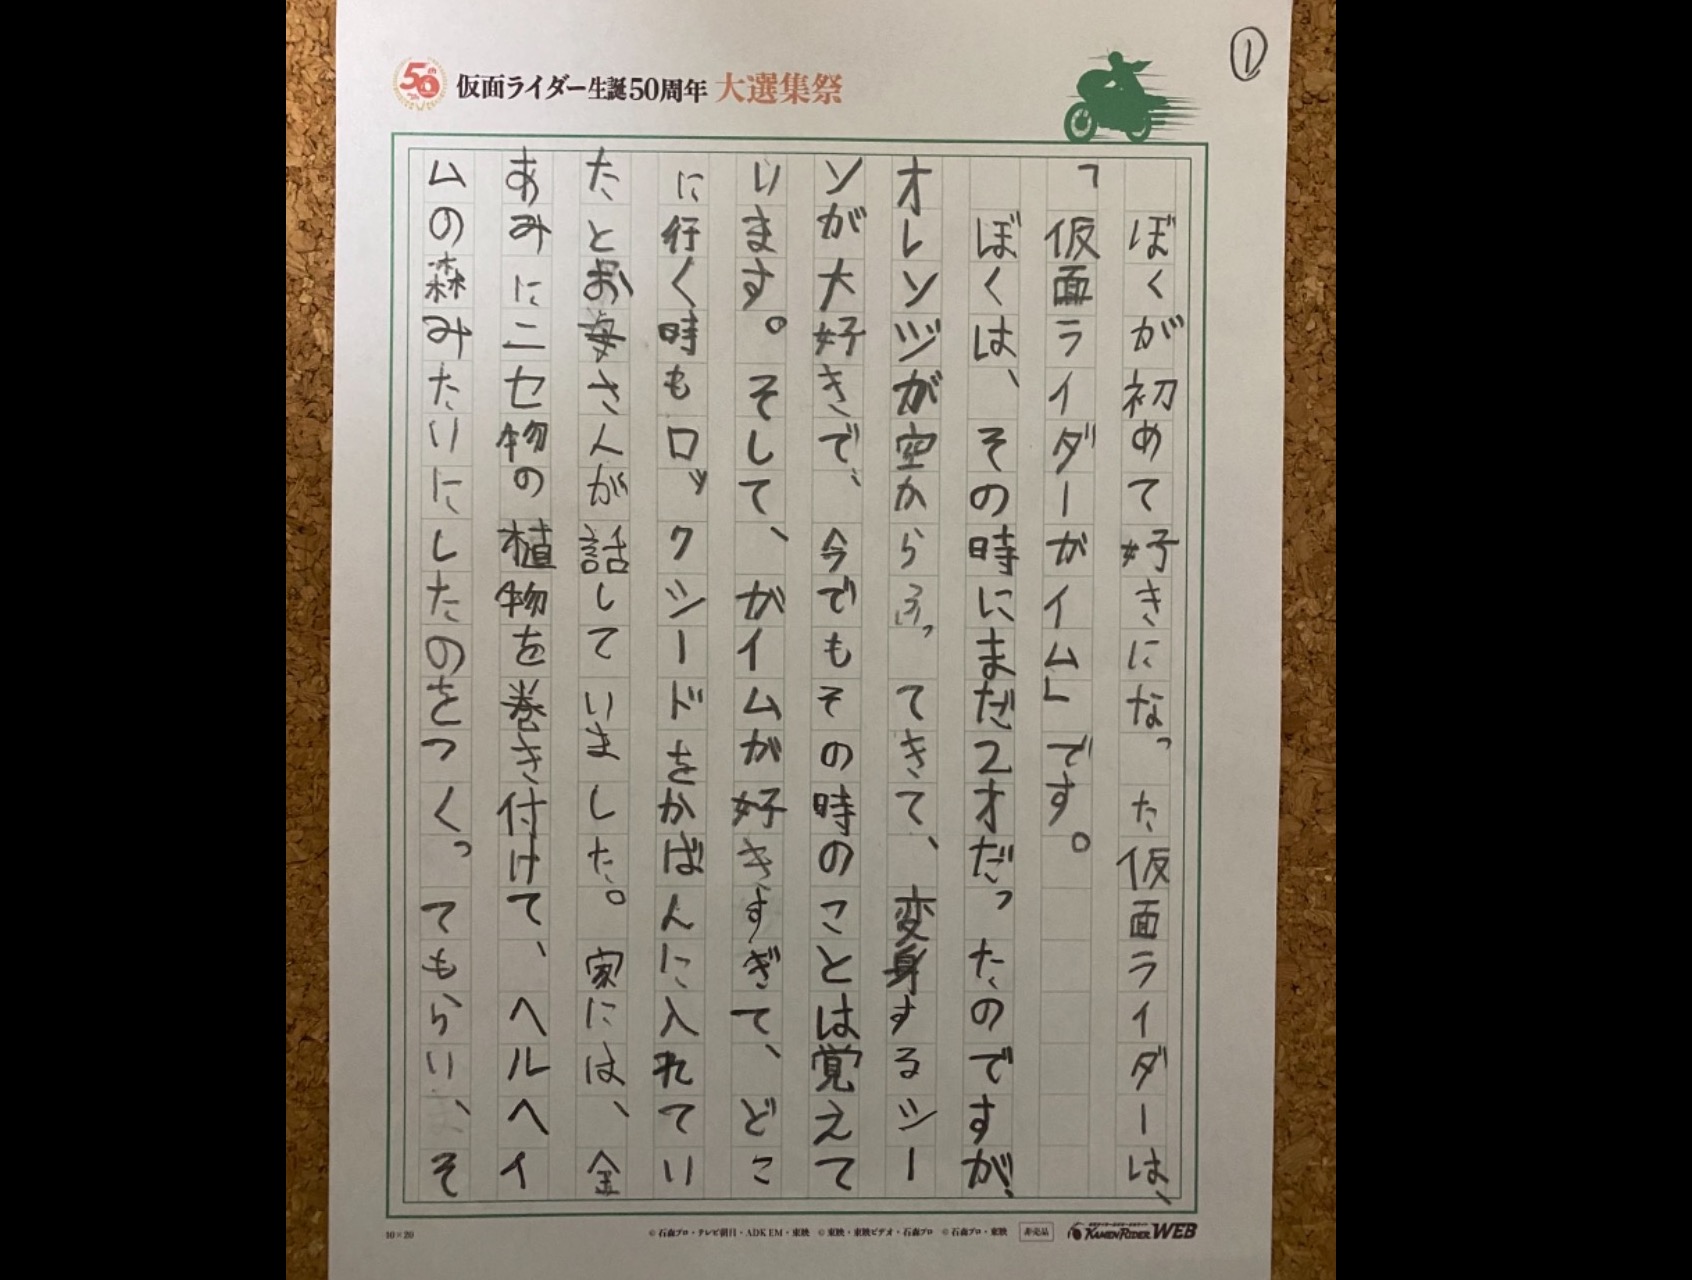 ①
50th
仮面ライダー生誕50周年 大選集祭
ぼくが初めて好きになった仮面ライダーは、
「仮面ライダーガイム」です。
ぼくは、その時にまだ2才だったのですが、
オレンジが空からふってきて、変身するシー
ンが大好きで、今でもその時のことは覚えて
います。そして、ガイムが好きすぎて、どこ
に行く時もロックシードをかばんに入れてい
たとお母さんが話していました。家には、金
あみにニセ物の植物を巻き付けて、ヘルヘイ
ムの森みたいにしたのをつくってもらい、そ
10×20
©石森プロ・テレビ朝日・ADK EM・東映 ©東映・東映ビデオ・石森プロ ©石森プロ・東映
非売品
KAMEN RIDER WEB